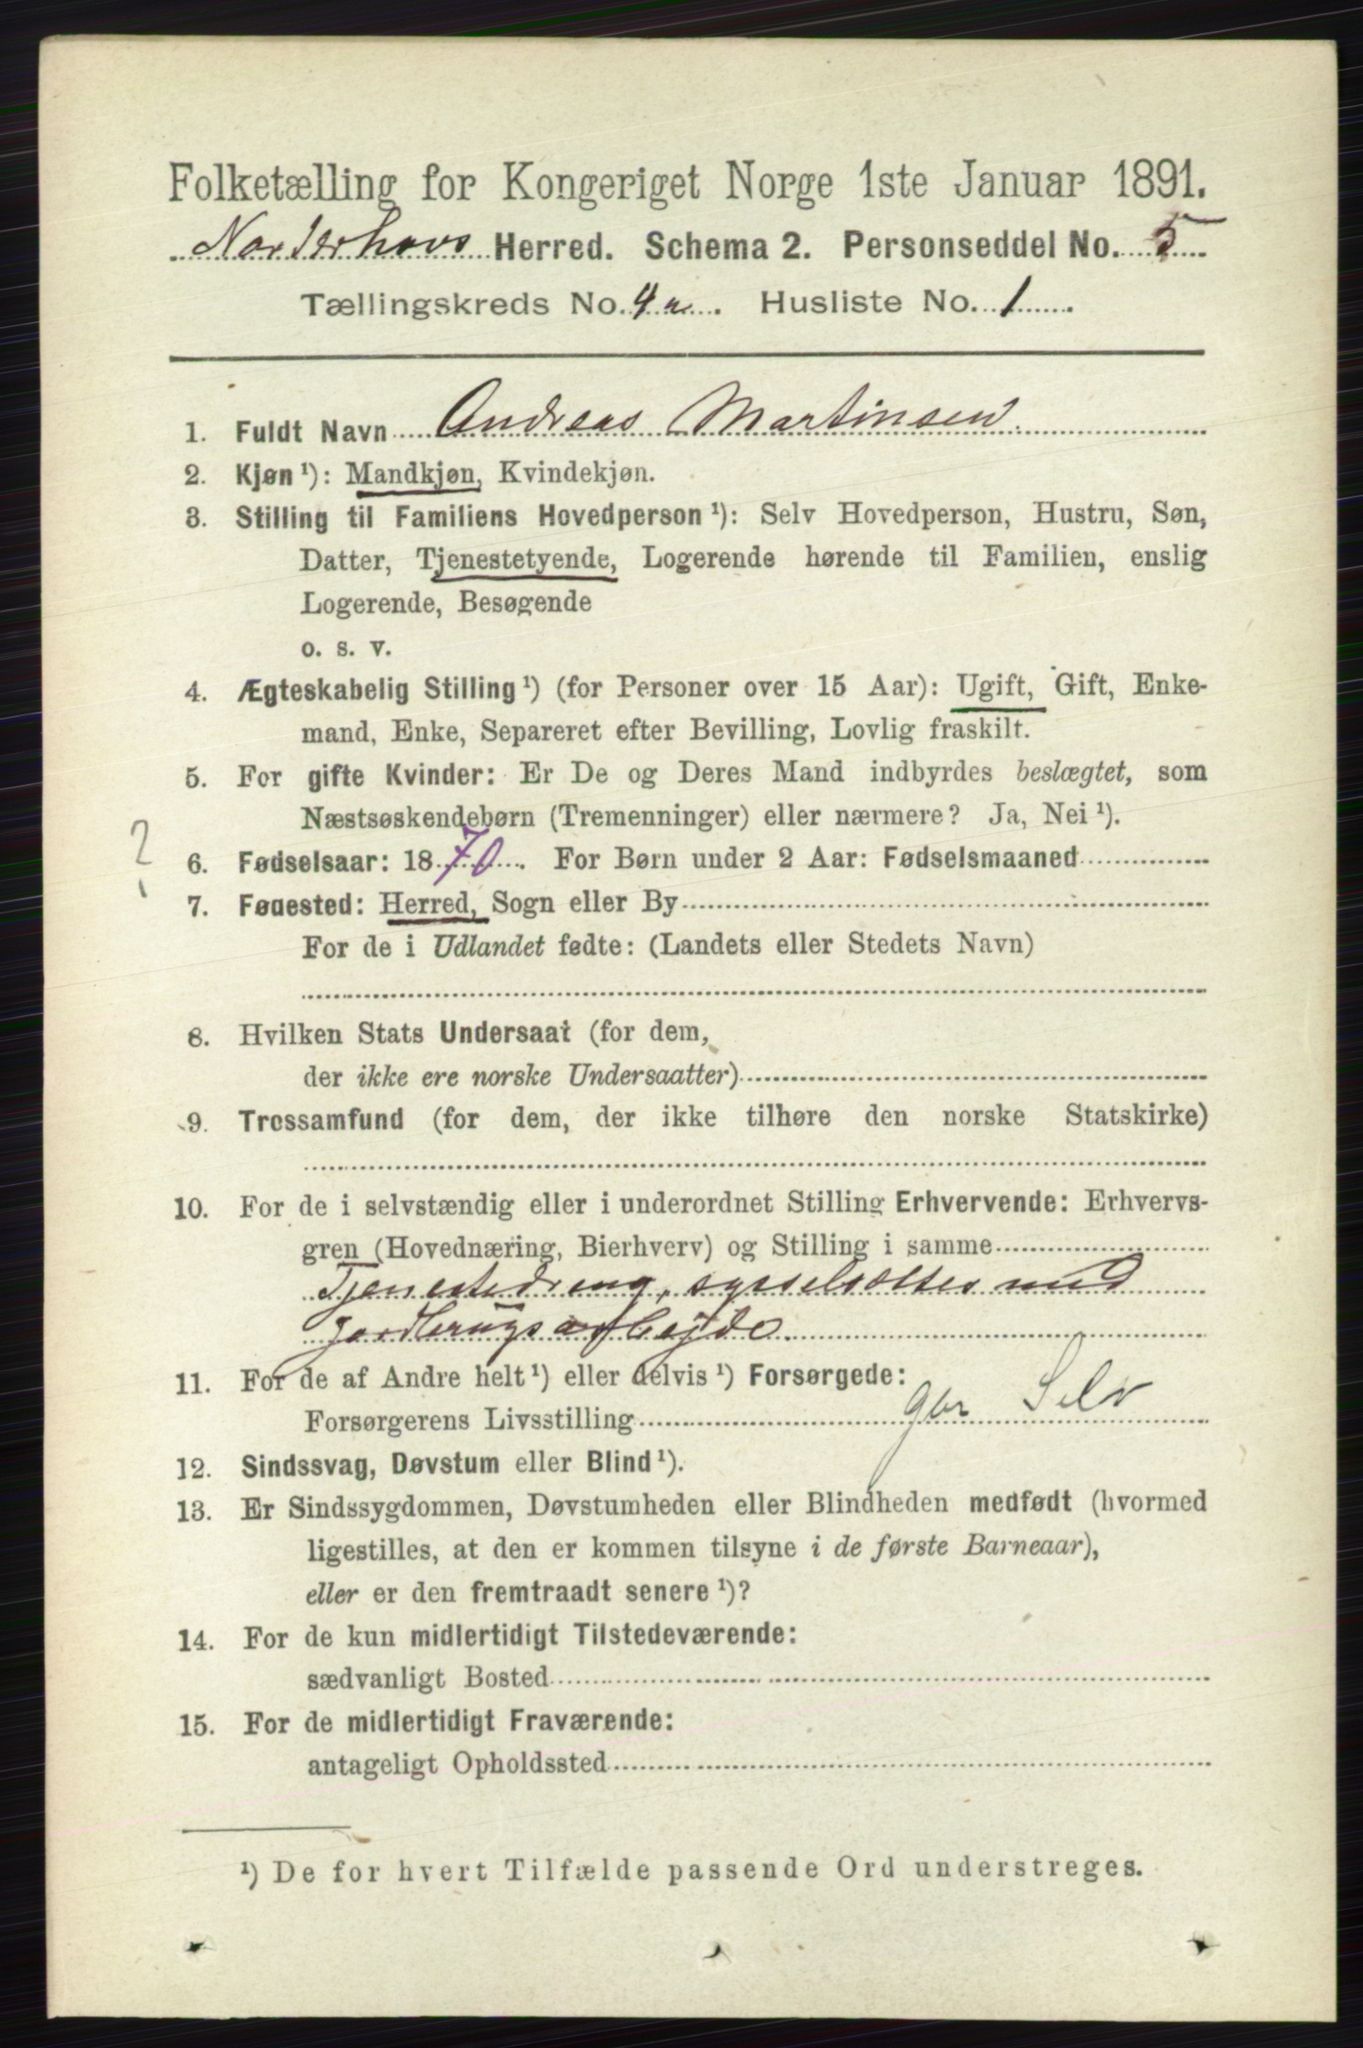 Folketælling for Kongeriget Norge 1ste Januar 1891.
Norderhovs Herred. Schema 2. Personseddel No. 5
Tællingskreds No. 4a. Husliste No. 1
1. Fuldt Navn Andreas Martinsen.
2. Kjøn ¹): Mandkjøn, Kvindekjøn.
3. Stilling til Familiens Hovedperson ¹): Selv Hovedperson, Hustru, Søn,
Datter, Tjenestetyende, Logerende hørende til Familien, enslig
Logerende, Besøgende
o. s. v.
4. Ægteskabelig Stilling ¹) (for Personer over 15 Aar): Ugift, Gift, Enke-
mand, Enke, Separeret efter Bevilling, Lovlig fraskilt.
5. For gifte Kvinder: Er De og Deres Mand indbyrdes beslægtet, som
Næstsøskendebørn (Tremenninger) eller nærmere? Ja, Nei ¹).
? 6. Fødselsaar: 1870. For Børn under 2 Aar: Fødselsmaaned
7. Fødested: Herred, Sogn eller By
For de i Udlandet fødte: (Landets eller Stedets Navn)
8. Hvilken Stats Undersaat (for dem,
der ikke ere norske Undersaatter)
9. Trossamfund (for dem, der ikke tilhøre den norske Statskirke)
10. For de i selvstændig eller i underordnet Stilling Erhvervende: Erhvervs-
gren (Hovednæring, Bierhverv) og Stilling i samme
Tjenestedreng, sysselsættes med
Jordbrugsarbejde.
11. For de af Andre helt ¹) eller delvis ¹) Forsørgede:
Forsørgerens Livsstilling Selv
12. Sindssvag, Døvstum eller Blind ¹).
13. Er Sindssygdommen, Døvstumheden eller Blindheden medfødt (hvormed
ligestilles, at den er kommen tilsyne i de første Barneaar),
eller er den fremtraadt senere ¹)?
14. For de kun midlertidigt Tilstedeværende:
sædvanligt Bosted
15. For de midlertidigt Fraværende:
antageligt Opholdssted
¹) De for hvert Tilfælde passende Ord understreges.